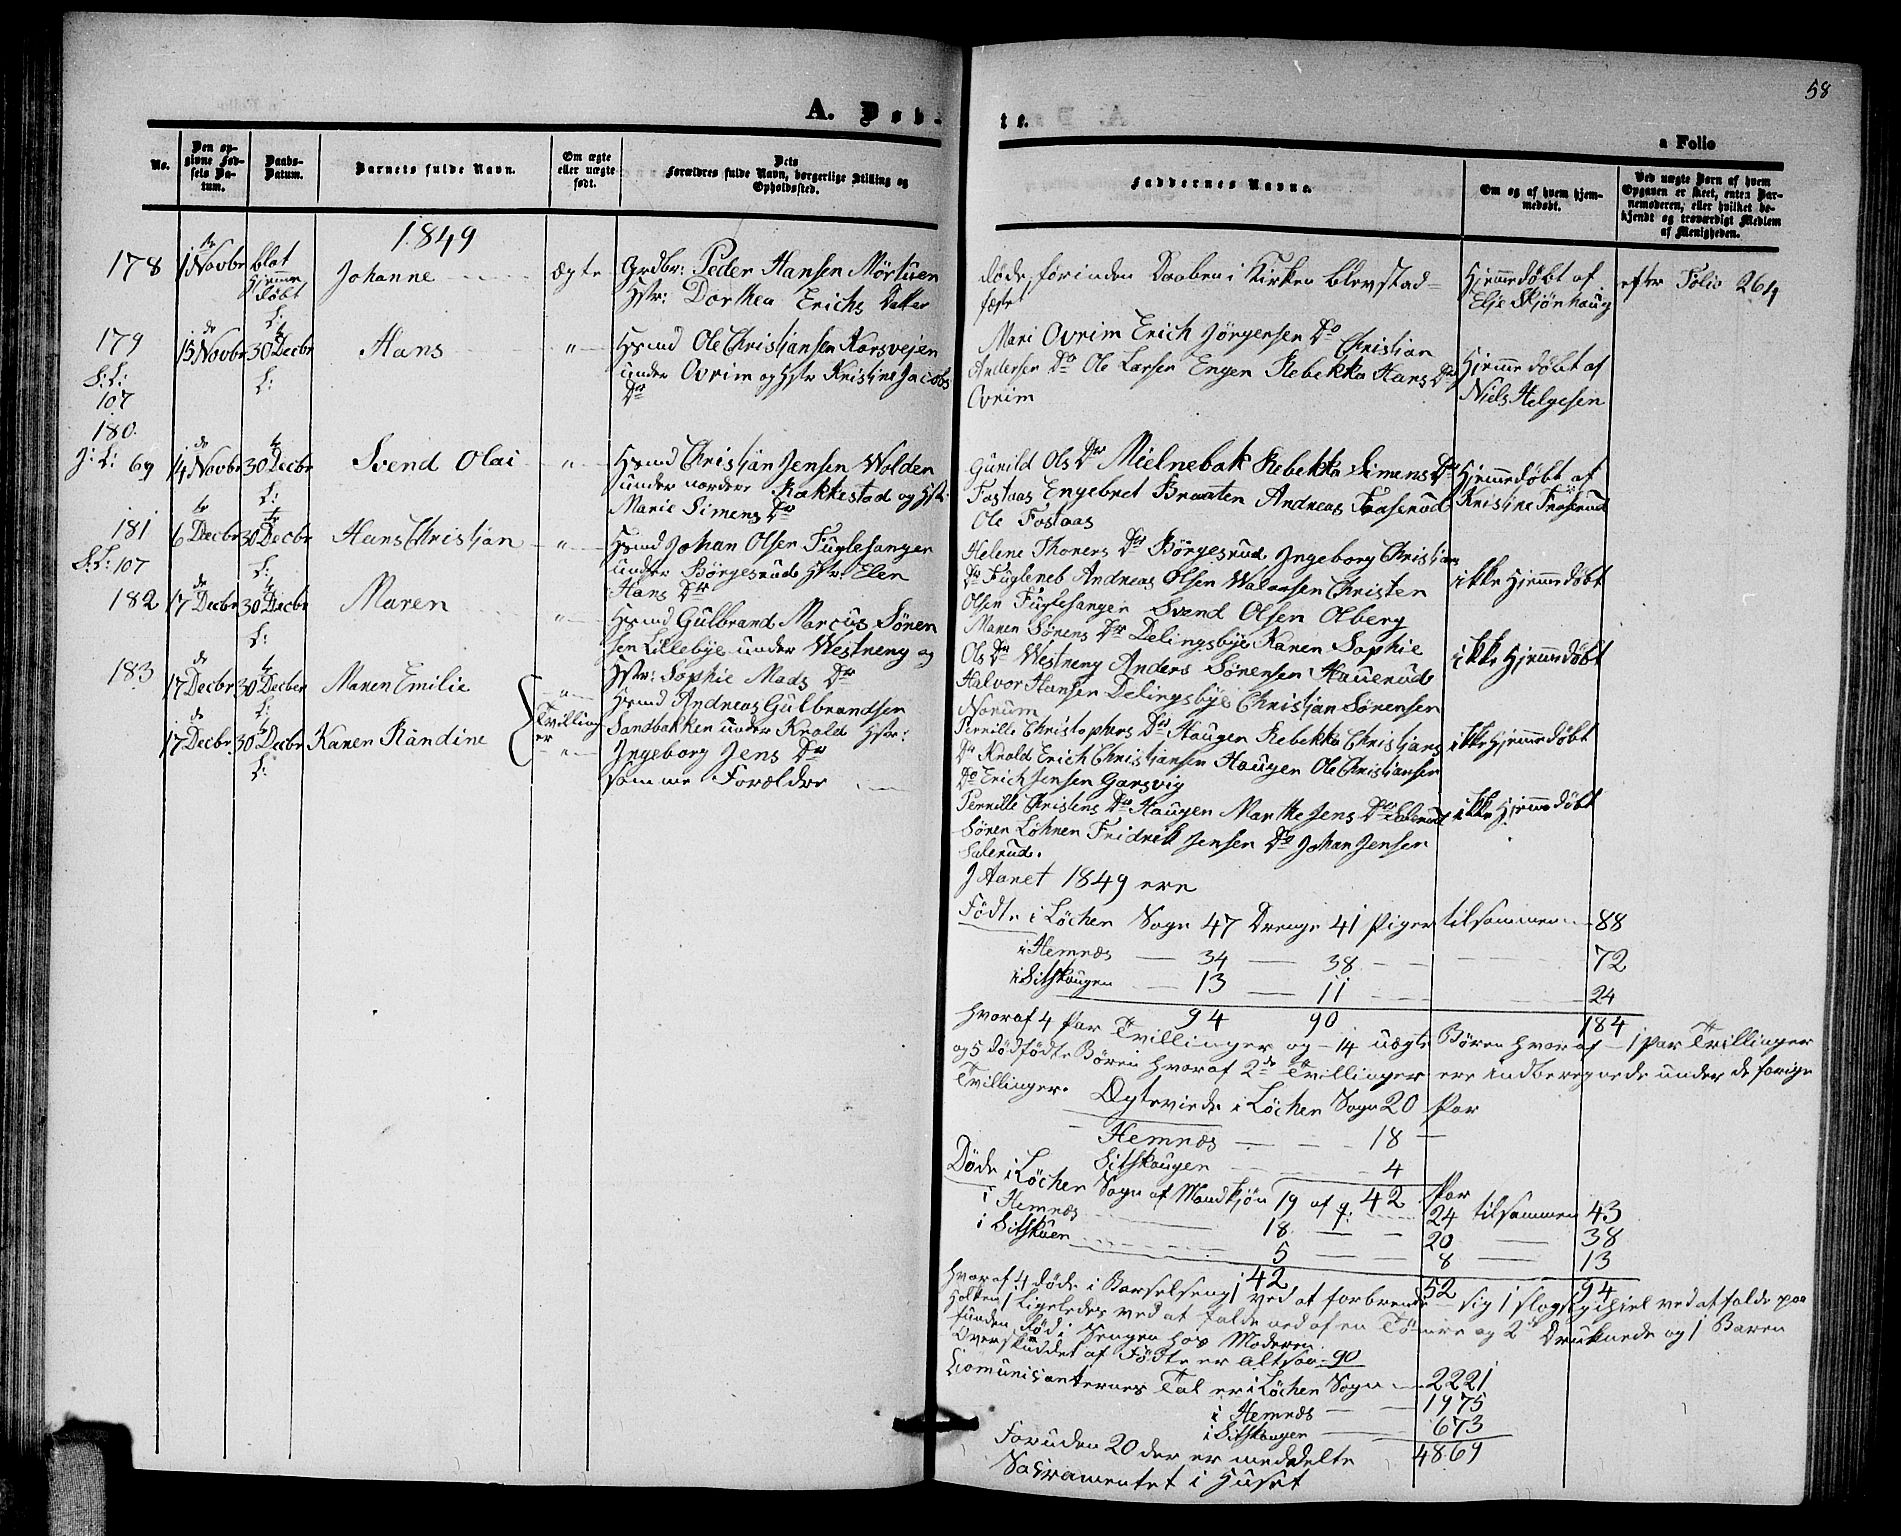 58
A. Døb-
te.
a Folio
No.
Den op-
givne Fød-
sels Da-
tum.
Daabs-
Datum.
Barnets fulde Navn.
Om ægte
eller uægte
født.
Dets
Forældres fulde Navn, borgerlige Stilling og
Opholdssted.
Faddernes Navne.
Om og af hvem hjem-
medøbt.
Ved uægte Børn af hvem
Opgaven er skeet, enten Bar-
nemoderen, eller hvilket be-
kjendt og troværdigt Medlem
af Menigheden.
1849
178 1 Novbr blot Johanne ægte Grdbr: Peder Hansen Mörtuen
hjemme
døbt Hstr: Dorthea Erichs Datter
døde forinden Daaben i Kirken blev stad=
fæstet
Hjemmedøbt af
Elje Skjönhaug
efter Folio 264
179 15 Novbr 30 Decbr Hans " Hsmd Ole Christjansen Korsvejen
S: L: under Ovrim og Hstr Kristine Jacobs
107 Dtr
Mari Ovrim Erich Jörgensen Do Christian
Andersen Do Ole Larsen Engen Rebekka Hans Dtr
Ovrim
Hjemmedøbt af
Niels Helgesen
180
J: L: 69 14 Novbr 30 Decbr Svend Olai " Hsmd Christjan Jensen Wolden
under nordere Rakkestad og Hstr:
Marie Simens Dtr
Gunild Ols Dtr Mielnebak Rebekka Simens Dtr
Fostaas Engebret Braaten Andreas Fraserud
Ole Fostaas
Hjemmedøbt af
Kristine Fraserud
181 6 Decbr 30 Decbr Hans Christjan " Hsmd Johan Olsen Fuglesanger
S: L: 107 under Börgesrud Hstr: Elen
Hans Dtr
Helene Thorers Dtr Börgesrud Ingeborg Christjans
Dtr Fugleneb Andreas Olsen Christen
Olsen Fuglesanger Svend Olsen Olberg
ikke hjemmedøbt
182 17 Decbr 30 Decbr Maren " Hsmd Gulbrand Marcus Sören
sen Lillebye under Westneng og
Hstr: Sophie Mads Dtr
Maren Sörens Dtr Delingsbye Karen Sophie
Ols Dtr Westneng Anders Sörensen Hauerud
Halvor Hansen Delingsbye Christjan Sörensen
Norum
ikke hjemmedøbt
183 17 Decbr 30 Decber Maren Emilie " Hsmd Andreas Gulbrandsen
Tvilling
er Sandbakken under Krold Hstr:
Ingeborg Jens Dtr
Pernille Christophers Dtr Haugen Rebekka Christjans
Dtr Krold Erich Christjansen Haugen Ole Christjansen
Do Erich Jensen Garsvig
ikke hjemmedøbt
17 Decbr 30 Decbr Karen Randine " samme Forældre
Pernille Christens Dtr Haugen Marthe Jens Dtr Salerud
Sören Löhren Fridrik Jensen Do Johan Jensen
Salerud.
ikke hjemmedøbt
I Aaret 1849 ere
Födte i Löchen Sogn 47 Drenge 41 Piger tilsammen 88
i Hemnæs 34 38 72
i Sitskougen 13 11 24
94 90 184
hvoraf 4 Par Tvillinger og 14 uægte Börn hvoraf 1 Par Tvillinger
og 5 dødfödte Börn hvoraf 2de Tvillinger ere indberegnede under de forige
Tvillinger.
Ægteviede i Löchen Sogn 20 Par
Hemnæs 18
Sitskougen 4
42 Par
Døde i Löchen Sogn af Mandkjön 19 af q: 24 tilsammen 43
i Hemnæs 18 20 38
i Sitskuen 5 8 13
42 52 94
hvoraf 4 døde i Barselseng 1 ved at forbrende sig 1 ved at falde paa
1 Ligeledes ved at falde ned af en og 2de Druknede og 1 Baren
funden död i Sengen hos Moderen.
Overskuddet af Födte er altsaa 90
Comunicanternes Tal er i Löchen Sogn 2221
i Hemnæs 1975
i Sitskougen 673
4869
Foruden 20 der er meddelte
Sacramentet i Huset